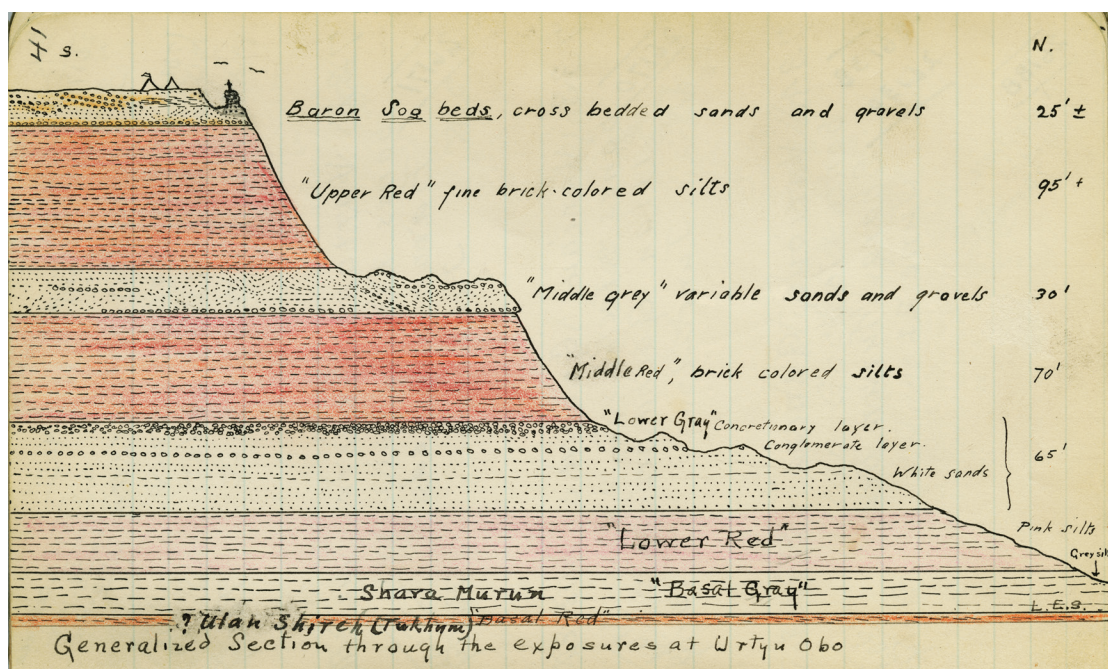 41 S. N.
Baron Sog beds, cross bedded sands and gravels 25' ±
"Upper Red" fine brick-colored silts 95' ±
"Middle grey" variable sands and gravels 30'
"Middle Red", brick colored silts 70'
"Lower Gray" Concretionary layer.
Conglomerate layer. 65'
White sands
Pink silts
"Lower Red"
Grey silts
Shara Murun "Basal Gray"
L.E.S.
? Ulan Shireh (Tukhum) "Basal Red"
Generalized Section through the exposures at Urtyn Obo